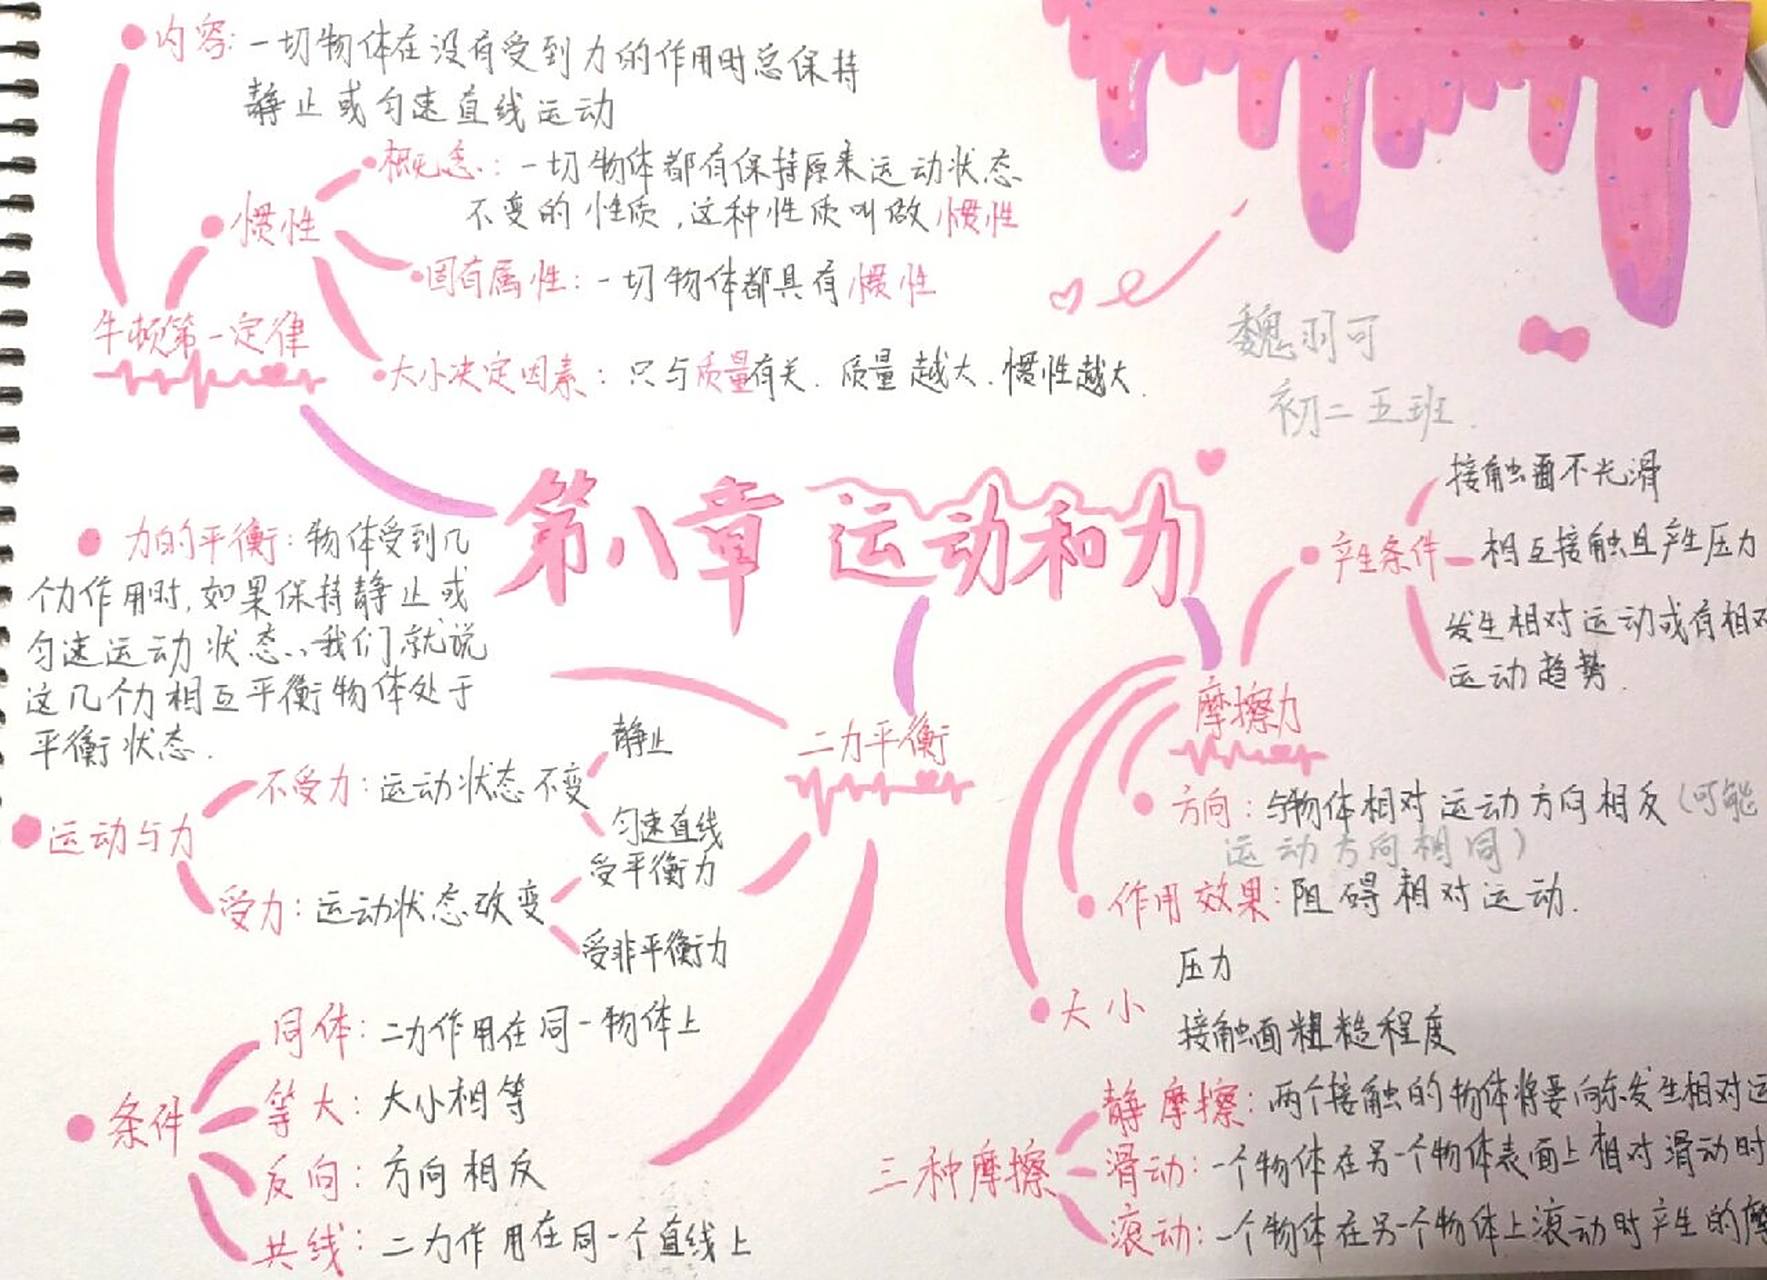 内容：一切物体在没有受到力的作用时总保持
静止或匀速直线运动
概念：一切物体都有保持原来运动状态
不变的性质，这种性质叫做惯性
惯性
固有属性：一切物体都具有惯性
牛顿第一定律
大小决定因素：只与质量有关．质量越大．惯性越大．
魏羽可
初二五班．
第八章 运动和力
力的平衡：物体受到几
个力作用时，如果保持静止或
匀速运动状态．，我们就说
这几个力相互平衡物体处于
平衡状态．
二力平衡
静止
不受力：运动状态不变
匀速直线
运动与力
受平衡力
受力：运动状态改变
受非平衡力
同体：二力作用在同一物体上
等大：大小相等
条件
反向：方向相反
共线：二力作用在同一个直线上
接触面不光滑
产生条件
相互接触且产生压力
发生相对运动或有相对
运动趋势．
摩擦力
方向：与物体相对运动方向相反（可能
运动方向相同）
作用效果：阻碍相对运动．
压力
大小
接触面粗糙程度
静摩擦：两个接触的物体将要向东发生相对运
三种摩擦
滑动：一个物体在另一个物体表面上相对滑动时
滚动：一个物体在另一个物体上滚动时产生的摩